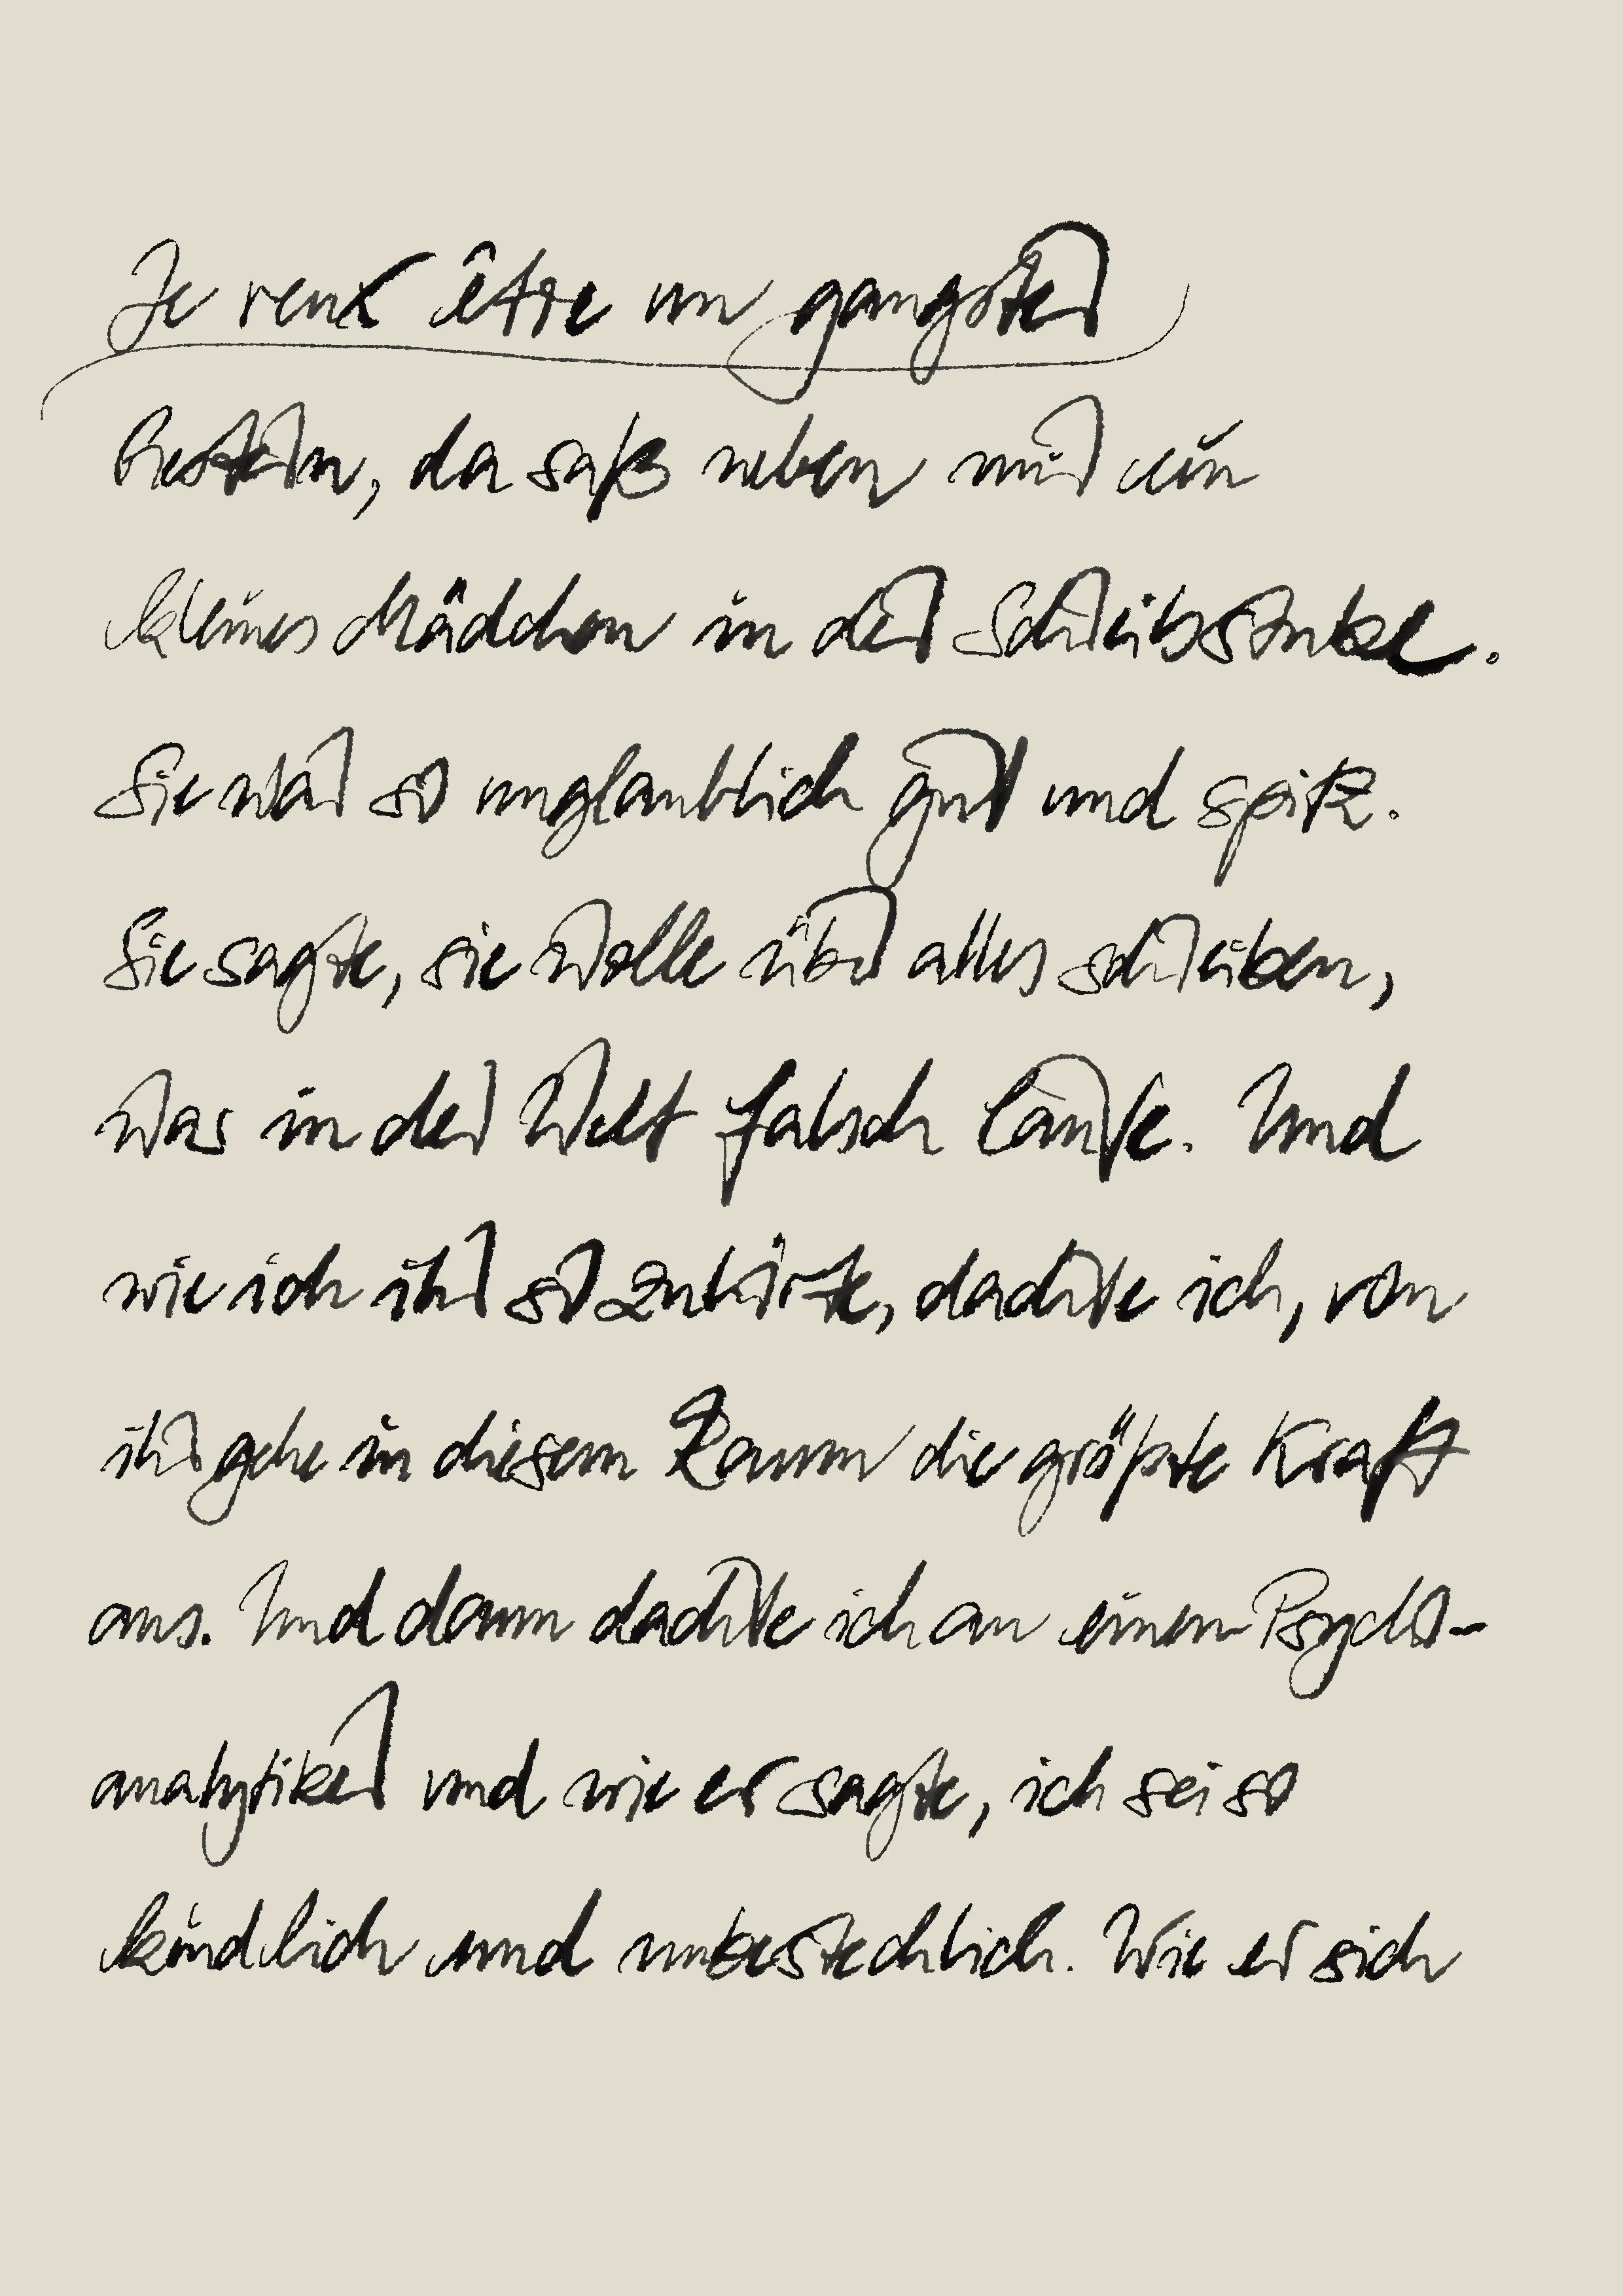 Je veux être un gangster
Gestern, da saß neben mir ein
kleines Mädchen in der Schreibstube.
Sie war so unglaublich gut und spitz.
Sie sagte, sie wolle über alles schreiben,
was in der Welt falsch laufe. Und
wie ich ihr so zuhörte, dachte ich, von
ihr gehe in diesem Raum die größte Kraft
aus. Und dann dachte ich an einen Psycho-
analytiker und wie er sagte, ich sei so
kindlich und unbestechlich. Wie er sich